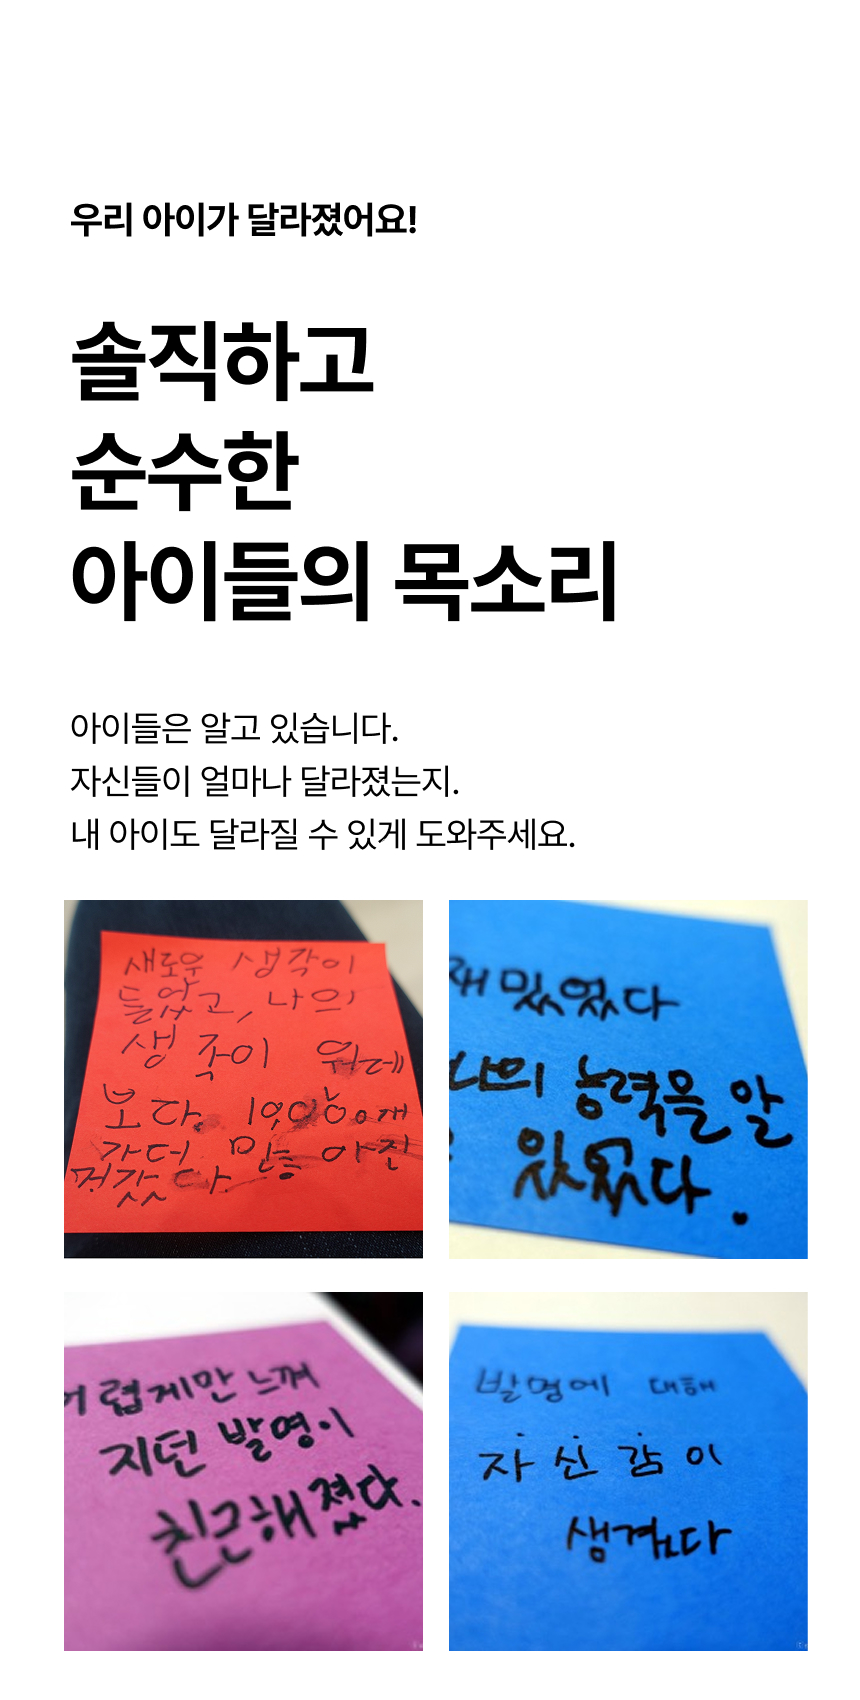 우리 아이가 달라졌어요!
솔직하고
순수한
아이들의 목소리
아이들은 알고 있습니다.
자신들이 얼마나 달라졌는지.
내 아이도 달라질 수 있게 도와주세요.
새로운 생각이
들었고, 나의
생각이
보다.
재밌었다
나의 능력을 알
있었다.
어렵게만 느껴
지던 발명이
친근해졌다.
발명에 대해
자신감이
생겼다